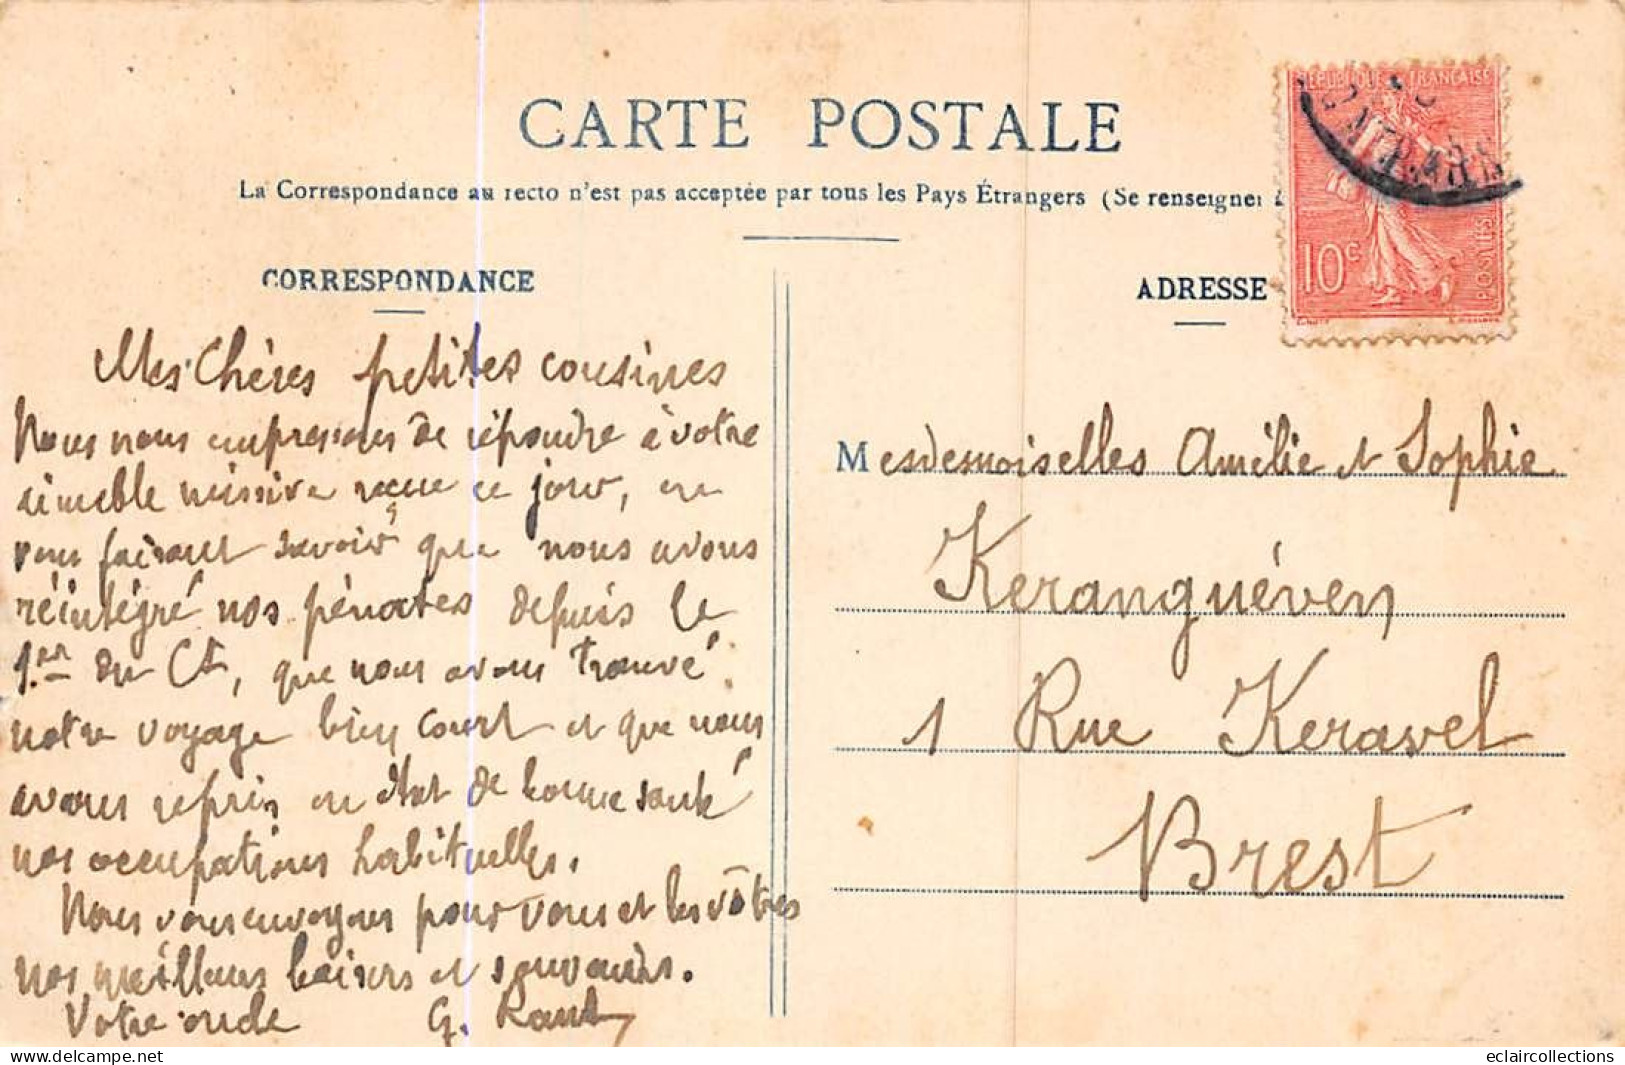 CARTE POSTALE
La Correspondance au recto n'est pas acceptée par tous les Pays Étrangers (Se renseigner à
RÉPUBLIQUE FRANÇAISE
10c
POSTES
CORRESPONDANCE
ADRESSE
Mes Chères petites cousines
Nous nous empressons de répondre à votre
aimable missive reçue ce jour, en
vous faisant savoir que nous avons
réintégré nos pénates depuis le
1.er du Ct, que nous avons trouvé
notre voyage bien court et que nous
avons repris en état de bonne santé
nos occupations habituelles.
Nous vous envoyons pour vous et les vôtres
nos meilleurs baisers et souvenirs.
Votre oncle G.
Mesdemoiselles Amélie et Sophie
Keranguéven
1 Rue Keravel
Brest
delcampe.net
eclaircollections